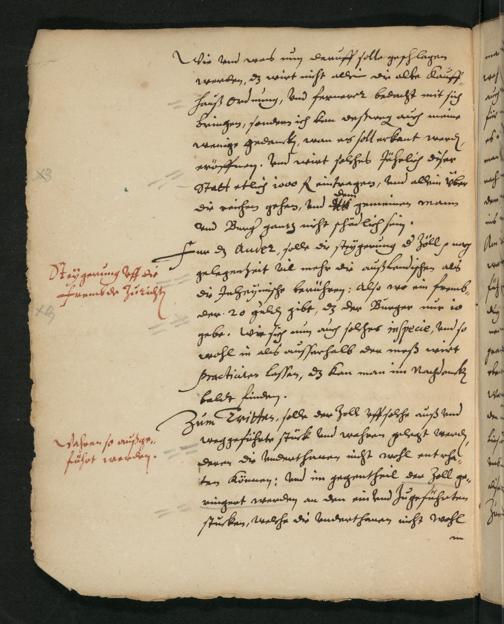 Wie und was nun daruff solte geschlagen
werden, dz wirt nicht allein die alte Kauff-
hauß Ordnung, und fernerer bedacht mit sich
bringen, sonder ich bin deßwegen auch meine
wenige gedancken, wan es soll erkant werden
eröffnen. Und wirt solches Jährlich diser
Statt etlich 1000 eintragen, und allein über
die reichen gehen, und dem gemeinen mann
und Burger gantz nicht schädlich sein.
Für dz Ander, solle die steygerung der Zöll
gelegenheit vil mehr die außländischen als
die Inheymische berühren: Also wo ein fremb-
der 20 geben gibt, dz der Burger nur 10
gebe. Wie sich nun auch solches in specie, und so
wohl in als ausserhalb der meß wirt
practiciren lassen, dz kan man im
balde finden.
Steygerung uff die
frembde Zurichten
Zum Dritten, solle der Zoll uff solche auß und
weggeführte stuck und wahren gelegt werden,
deren die underthanen nicht wohl entrha-
ten können: Und im gegentheil der Zoll ge-
ringert werden an den ein und Zugeführten
stucken, welche die underthanen nicht wohl
Wahren so außge-
führt werden.